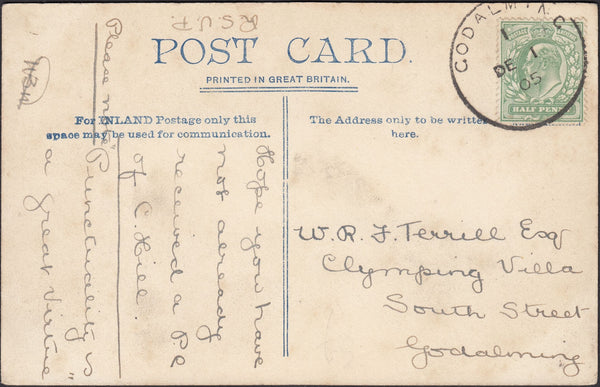 R.S.V.P.
POST CARD.
PRINTED IN GREAT BRITAIN.
For INLAND Postage only this
space may be used for communication.
The Address only to be written
here.
GODALMING
1
DE 1
05
HALF PEN
Hope you have
not already
received a PC
of C. Hill.
Please note
"Punctuality is
a great virtue"
W. R. F. Terrill Esq
Clymping Villa
South Street
Godalming